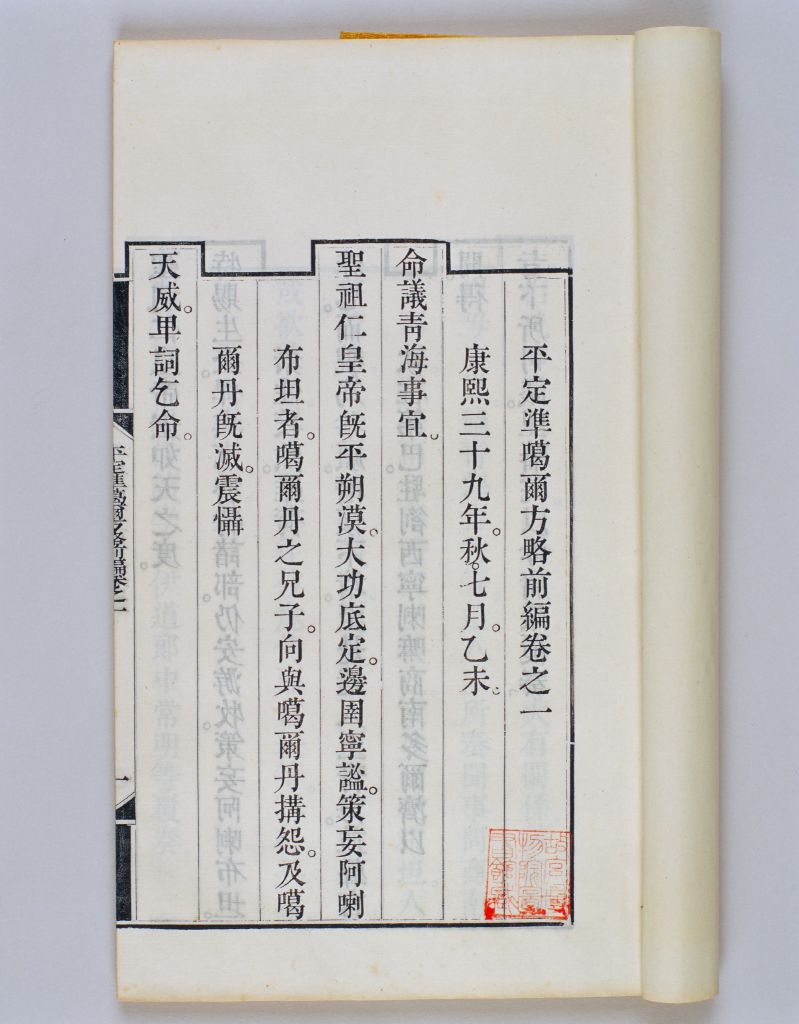 平定準噶爾方略前編卷之一
康熙三十九年。秋。七月。乙未。
命議青海事宜。
聖祖仁皇帝旣平朔漠。大功底定。邊圉寧謐。策妄阿喇
布坦者。噶爾丹之兄子。向與噶爾丹搆怨。及噶
爾丹旣滅。震懾
天威。卑詞乞命。
平定準噶爾方略前編卷之一
一